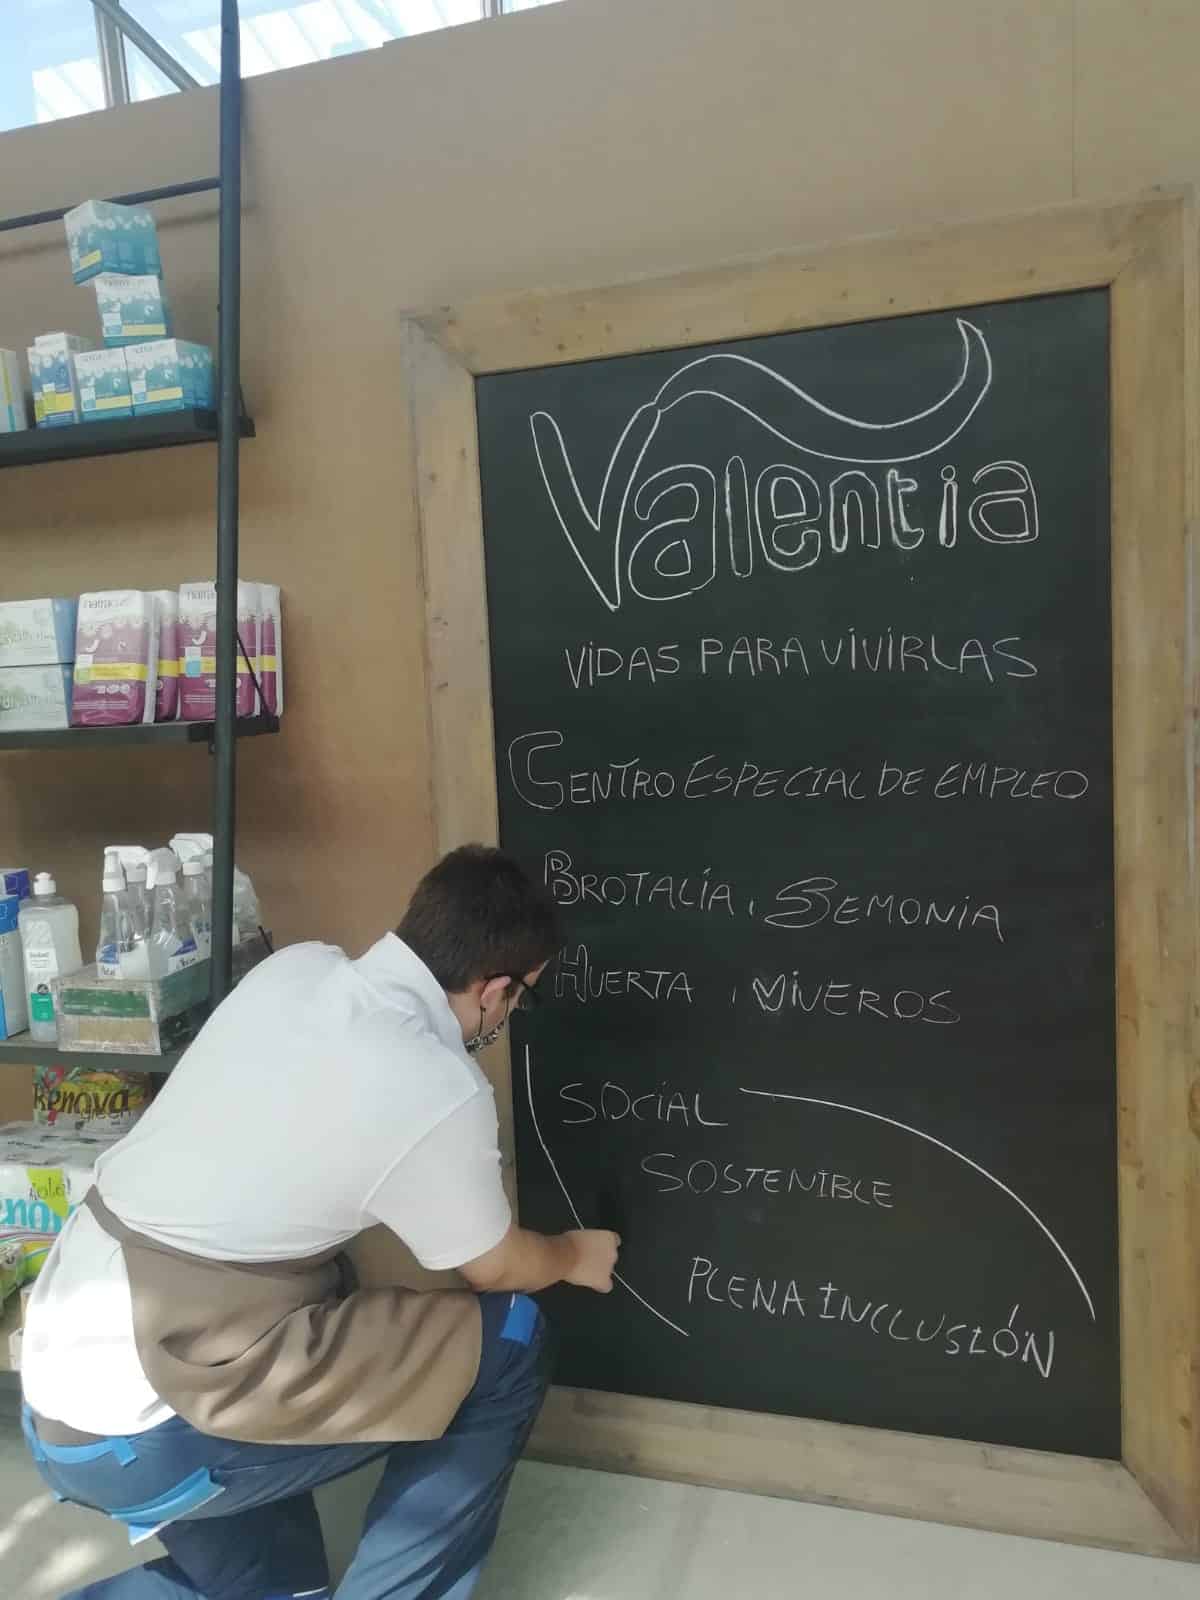 Valentia
VIDAS PARA VIVIRLAS
CENTRO ESPECIAL DE EMPLEO
BROTALIA, SEMONIA
HUERTA, VIVEROS
SOCIAL
SOSTENIBLE
PLENA INCLUSIÓN
natracare
Renova
green